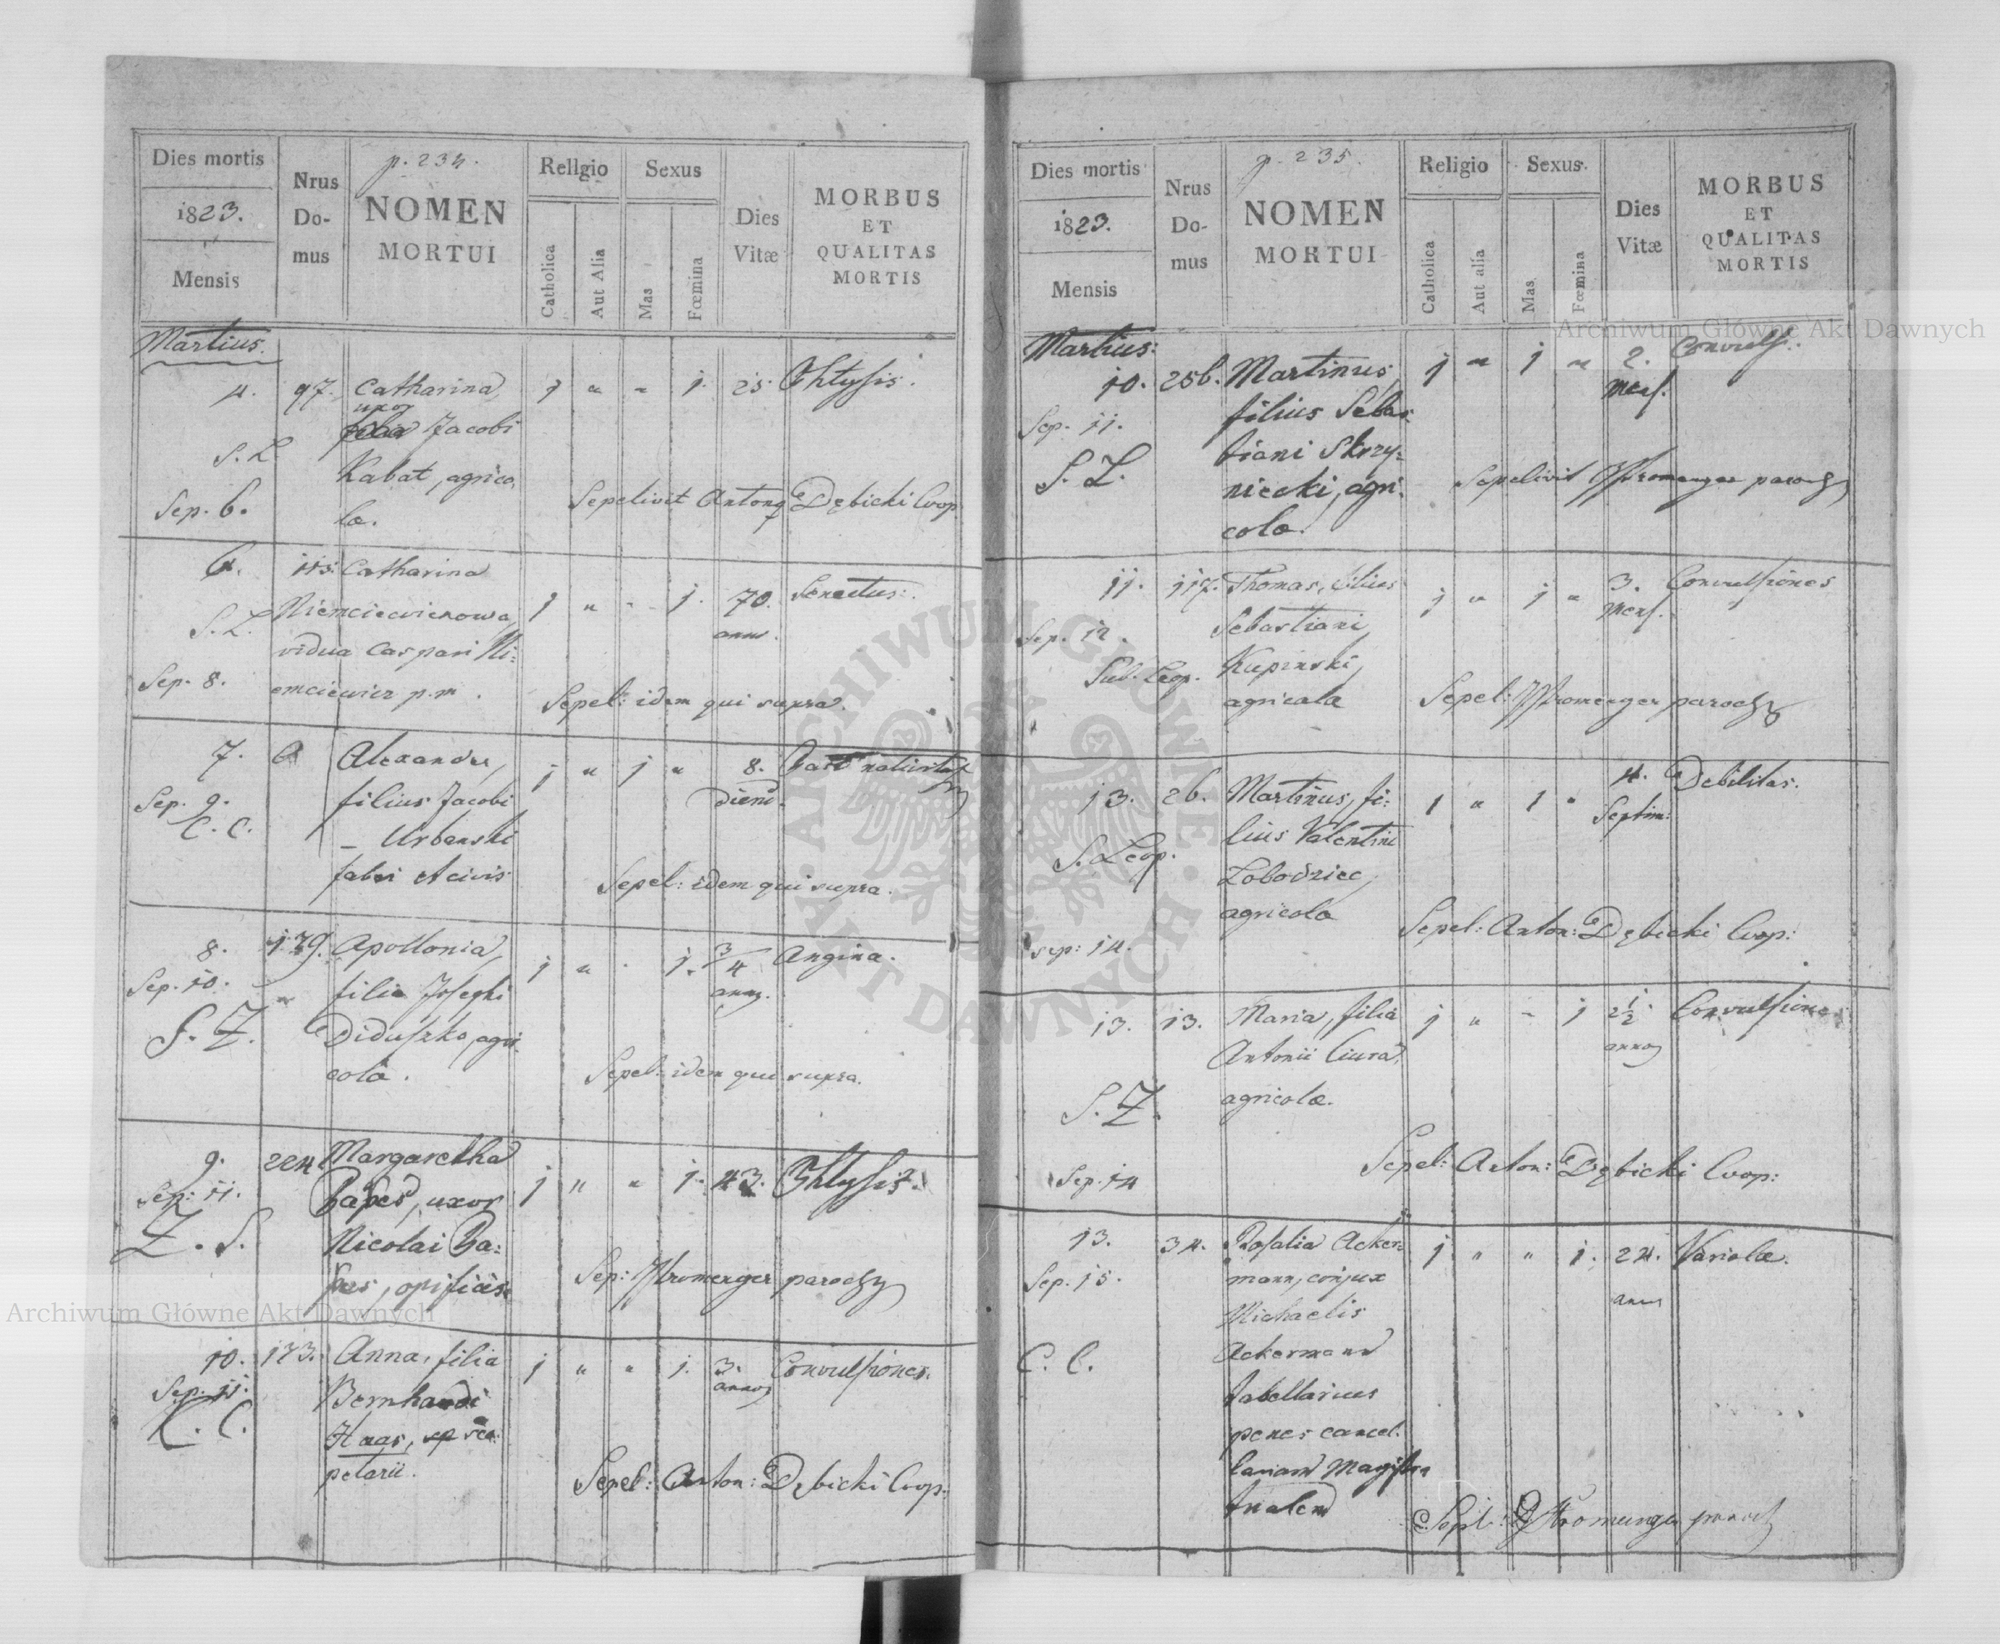 p. 234.
Dies mortis
1823.
Mensis
Nrus
Do-
mus
NOMEN
MORTUI
Religio
Catholica
Aut Alia
Sexus
Mas
Fœmina
Dies
Vitæ
MORBUS
ET
QUALITAS
MORTIS
Martius.
4. 97. Catharina, 1 " " 1. 25 Phtysis.
uxor
filia Jacobi
S. L.
Kabat, agrico-
Sepelivit Antonq Dębicki Coop.
Sep. 6.
læ.
6. 115. Catharina
Niemciewiczowa, 1 " " 1. 70. Senectus.
S. L.
anno.
vidua Caspari Ni-
Sep. 8.
emciewicz p. m.
Sepel: idem qui supra.
7. Alexander, 1 " 1 " 8.
Sep. 9. filius Jacobi
dierū.
C. C.
Urbanski
fabri et civis
Sepel: idem qui supra.
8. 179. Apollonia, 1 " " 1. 3/4 Angina.
Sep. 10.
anny.
filia Josephi
S. Z.
Diduszko, agri-
cola.
Sepel: idem qui supra.
9. 224 Margaretha
Sep: 11.
uxor 1 " " 1. 43. Phtysis.
Z. S.
Nicolai
opificis
Sep: parochq
10. 173. Anna, filia 1 " " 1. 3. Convulsiones.
annoq
Sep. 11. Bernhardi
C. C.
Haas,
petarii.
Sepel: Anton: Dębicki Coop.
p. 235.
Dies mortis
1823.
Mensis
Nrus
Do-
mus
NOMEN
MORTUI
Religio
Catholica
Aut alia
Sexus.
Mas
Fœmina
Dies
Vitæ
MORBUS
ET
QUALITAS
MORTIS
Martius:
10. 256. Martinus, 1 " 1 " 2. Convuls:
mens.
Sep. 11. filius Sebas-
S. L.
tiani Skrzy-
niecki, agri-
Sepelivit parochq
cola.
11. 117. Thomas, filius 1 " 1 " 3. Convulsiones
mens.
Sep. 12. Sebastiani
Kupinski,
Sub. Leop.
agricola
Sepel: parochq
13. 26. Martinus, fi- 1 " 1 " 4. Debilitas.
Septim:
lius Valentini
S. Leop.
Łobodziec,
agricola
Sepel: Anton: Dębicki Coop:
sep: 14.
13. 13. Maria, filia 1 " " 1 2 1/2 Convulsione
annoq
Antonii Ciura,
S. Z.
agricolæ.
Sepel: Anton: Dębicki Coop:
Sep. 14
13. 34. Rosalia Acker- 1 " " 1. 24. Variolæ.
Sep. 15. mann, conjux
ann
Michaelis
C. C.
Ackermann
tabellarius
penes cancel-
lariam Magistra
tualem
Sepel:
Archiwum Główne Akt Dawnych
Archiwum Główne Akt Dawnych
ARCHIWUM GŁÓWNE AKT DAWNYCH